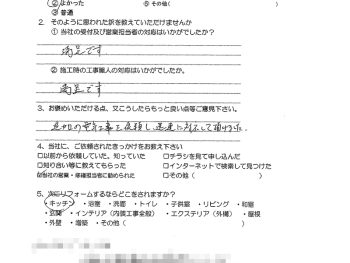 ②よかった ⑤その他(
③普通
2. そのように思われた訳を教えていただけませんか
① 当社の受付及び営業担当者の対応はいかがでしたか？
満足です
② 施工時の工事職人の対応はいかがでしたか。
満足です
3. お褒めいただける点、又こうしたらもっと良い点等ご意見下さい。
4. 当社に、ご依頼されたきっかけをお教え下さい
□以前から依頼していた。知っていた □チラシを見て申し込んだ
□知り合い等に教えてもらった □インターネットで検索して見つけた
当社の営業・修繕担当者に勧められた □その他（ ）
5. 次にリフォームするならどこをされますか？
・キッチン ・浴室 ・洗面 ・トイレ ・子供部 ・リビング ・和室
・玄関 ・インテリア（内装工事全般） ・エクステリア（外構） ・屋根
・外壁 ・増築 ・その他（ ）